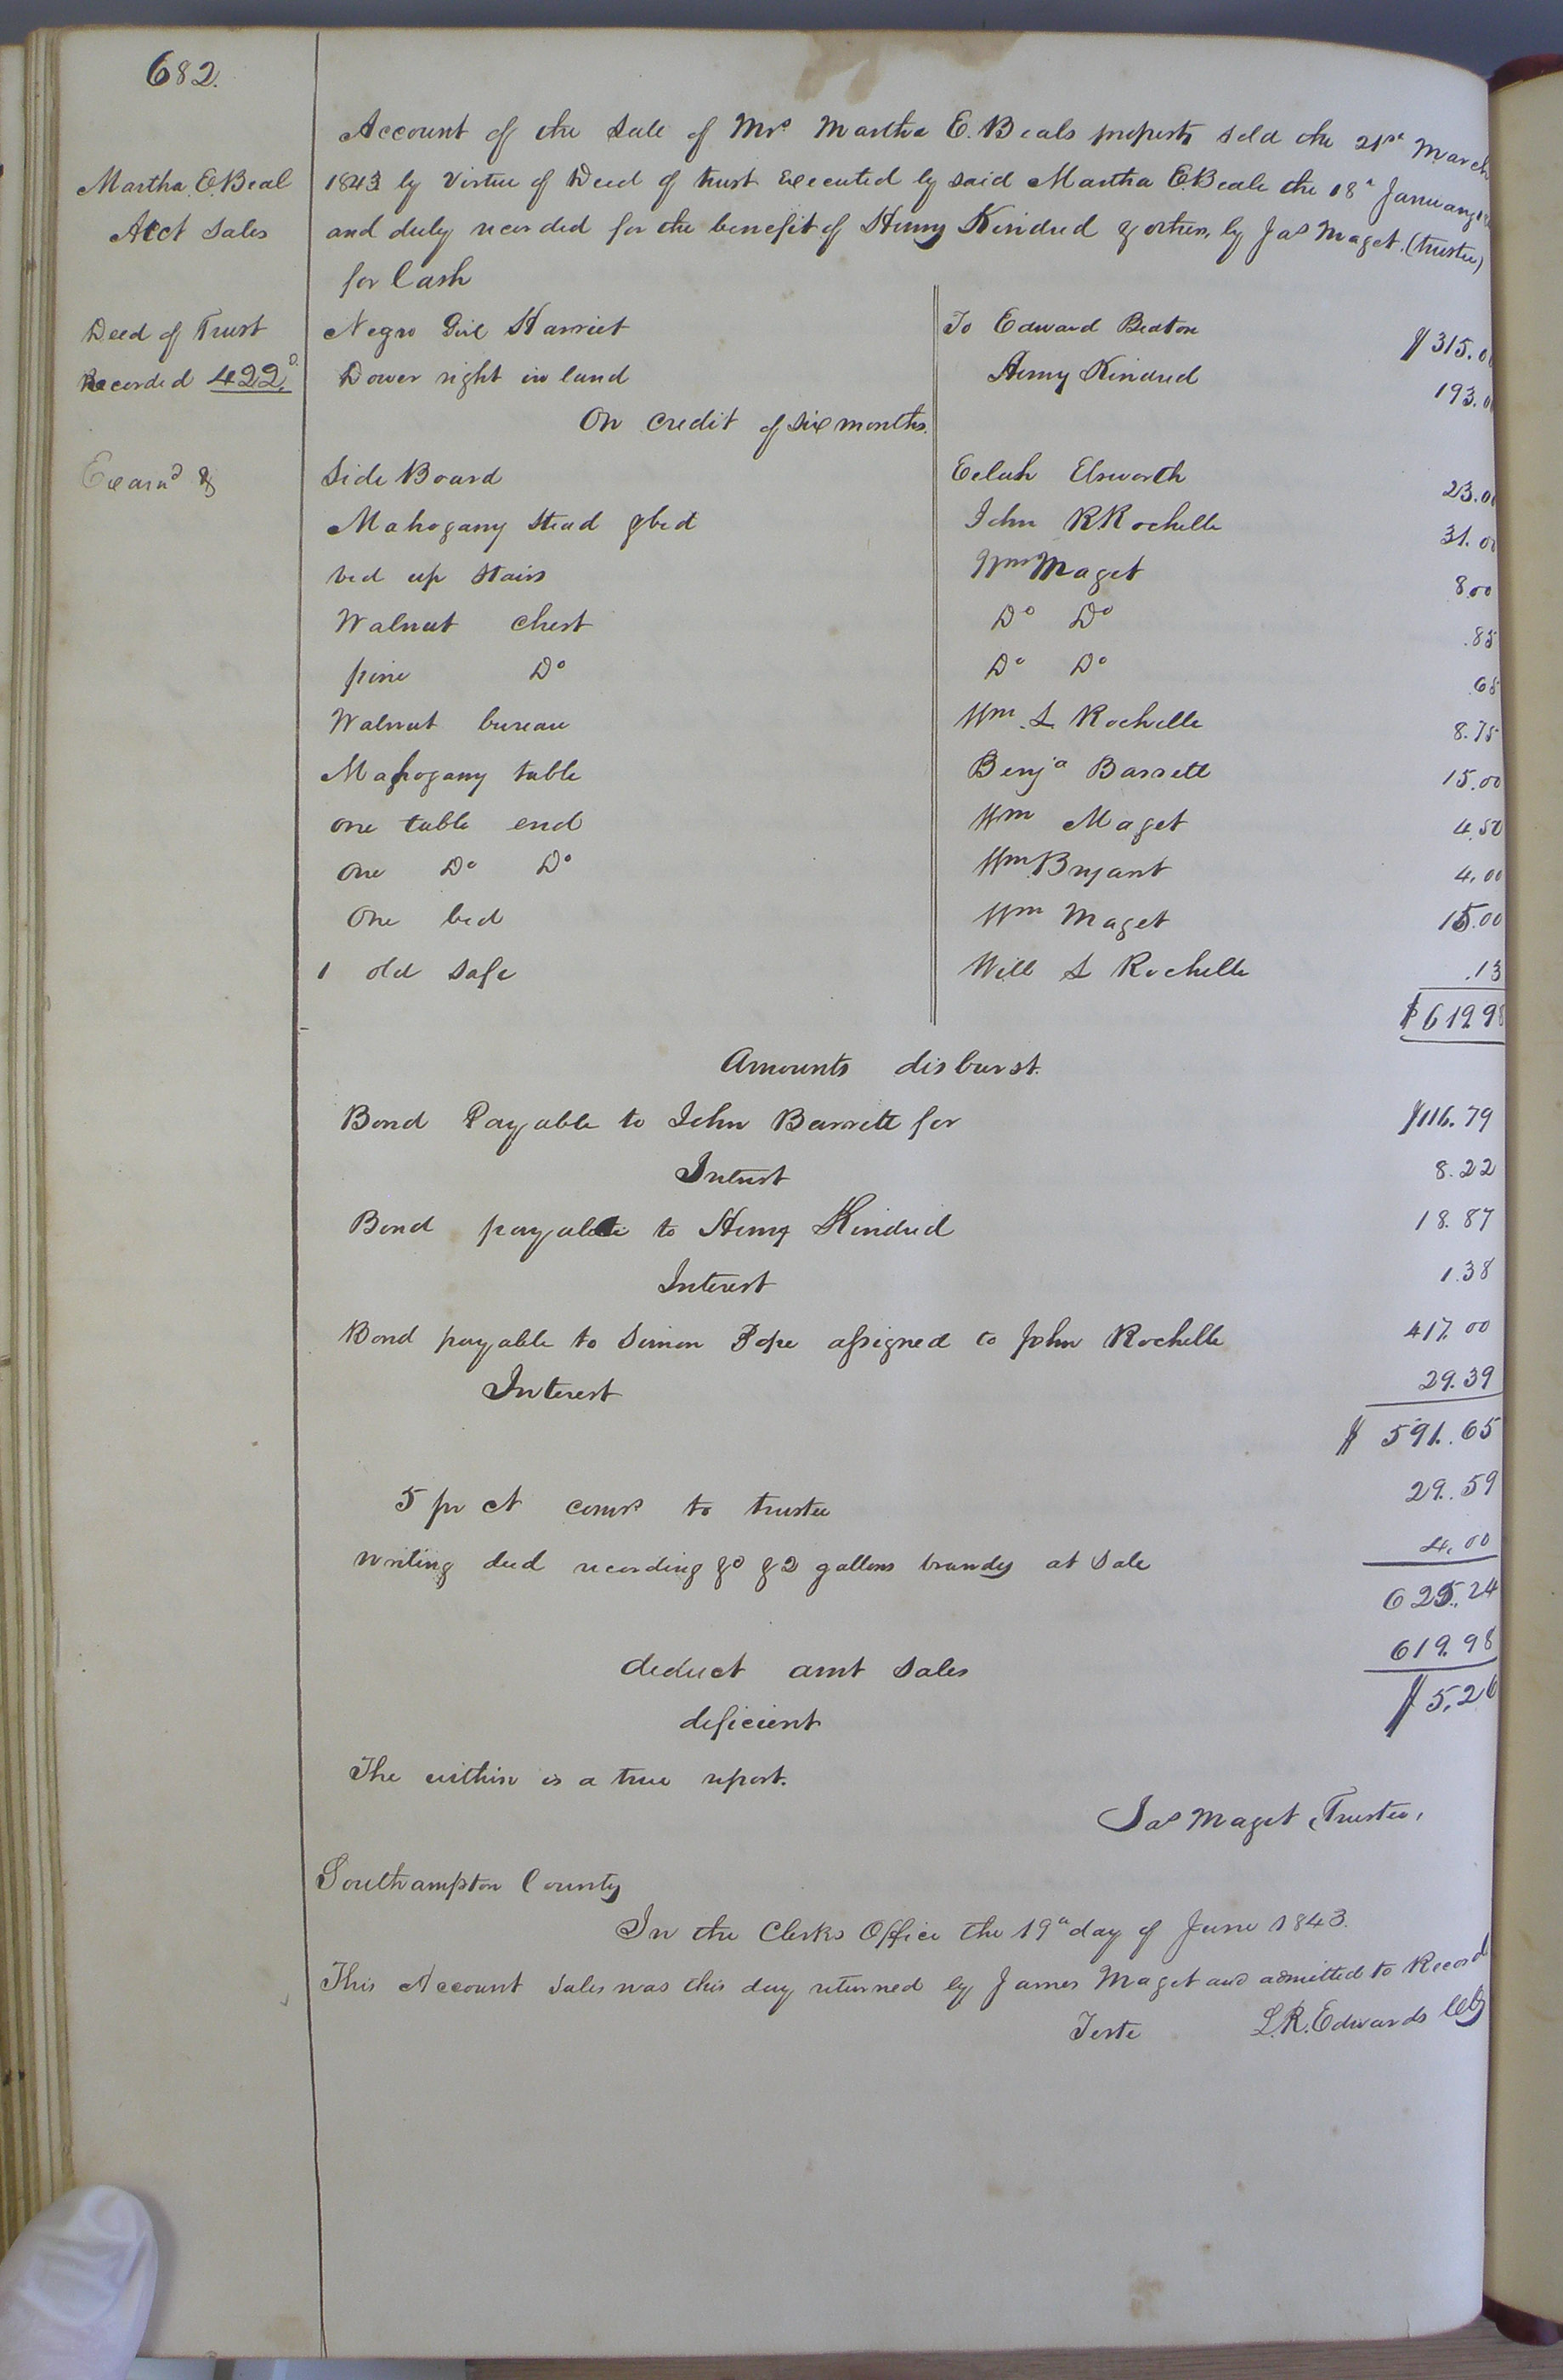 682.
Account of the Sale of Mrs Martha E. Beals property sold the 21st March
Martha E. Beal
Acct Sales
1843 by Virtue of Deed of trust Executed by said Martha E. Beale the 18th January
and duly recorded for the benefit of Henry Kindred & others, by Jas Maget. (trustee)
for Cash
Deed of Trust
Recorded 422
Negro Girl Harriet To Edward Beaton $315.00
Dower right in land Henry Kindred 193.00
On credit of six months.
Examd &
Side Board Elsworth 23.00
Mahogany Stead & bed John R Rochelle 31.00
bed up Stairs Wm Maget 8.00
Walnut chest Do Do .85
pine Do Do Do .65
Walnut bureau Wm S. Rochelle 8.75
Mahogany table Benja Barrett 15.00
one table end Wm Maget 4.50
one Do Do Wm Bryant 4.00
One bed Wm Maget 15.00
1 old Safe Will S Rochelle .13
$619.98
Amounts disburst.
Bond Payable to John Barrett for $116.79
Interest 8.22
Bond payable to Henry Kindred 18.87
Interest 1.38
Bond payable to Simon Pope assigned to John Rochelle 417.00
Interest 29.39
$ 591.65
5 pr ct coms to trustee 29.59
writing deed recording &c & 2 gallons brandy at Sale 4.00
625.24
deduct amt Sales 619.98
deficient $5.26
The within is a true report.
Jas Maget, Trustee,
Southampton County
In the Clerks Office the 19th day of June 1843.
This Account Sales was this day returned by James Maget and admitted to Record
Teste L.R. Edwards Clk